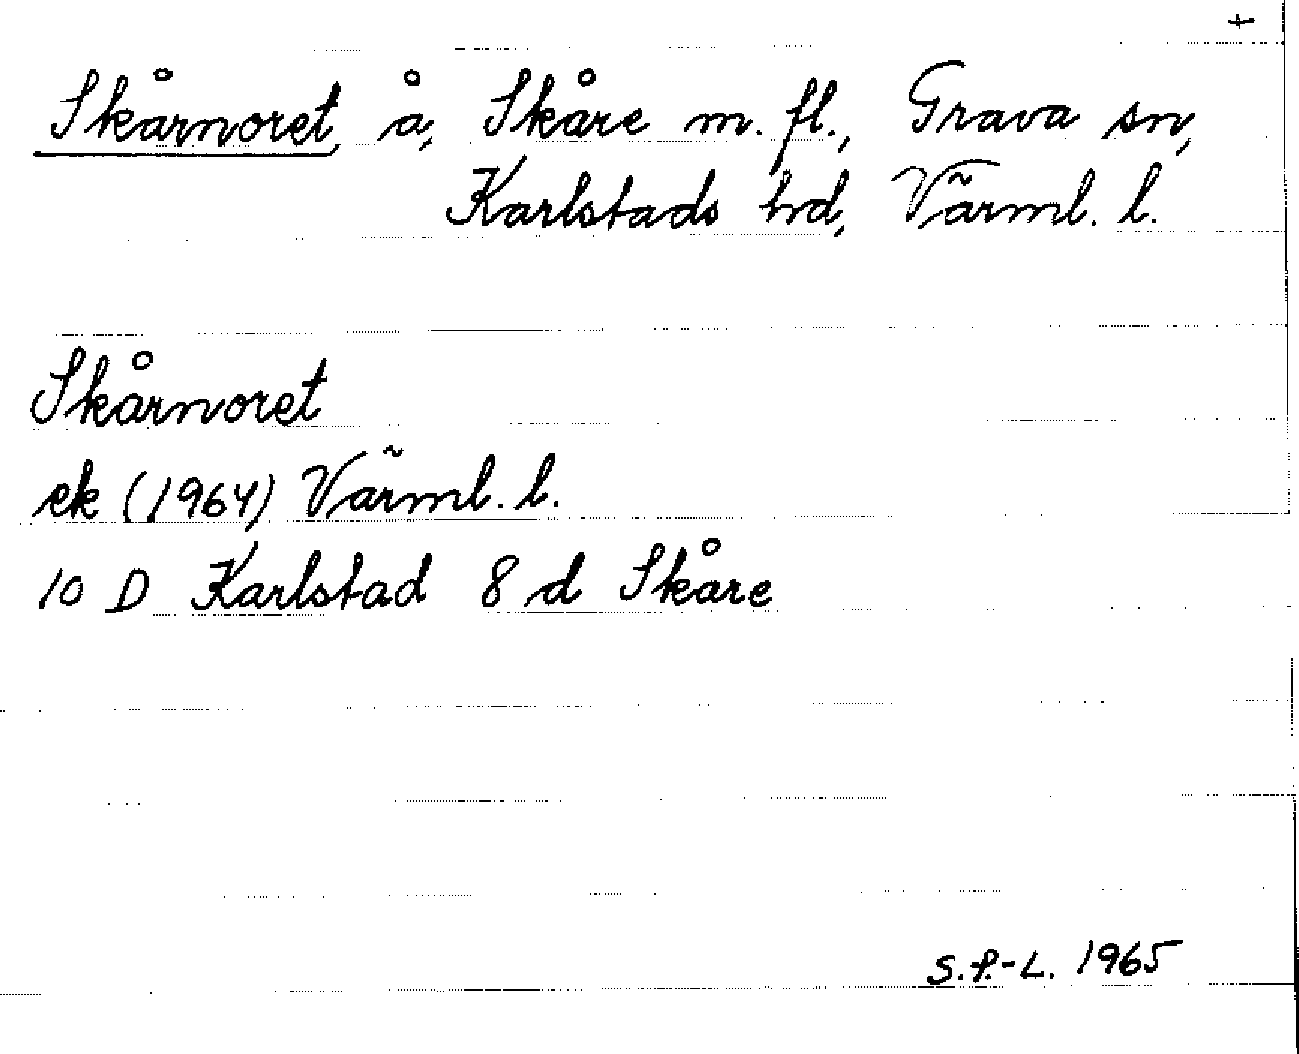 +
Skårnoret, å, Skåre m. fl., Grava sn,
Karlstads hd, Värml. l.
Skårnoret
ek (1964) Värml. l.
10 D Karlstad 8 d Skåre
S.P.-L. 1965